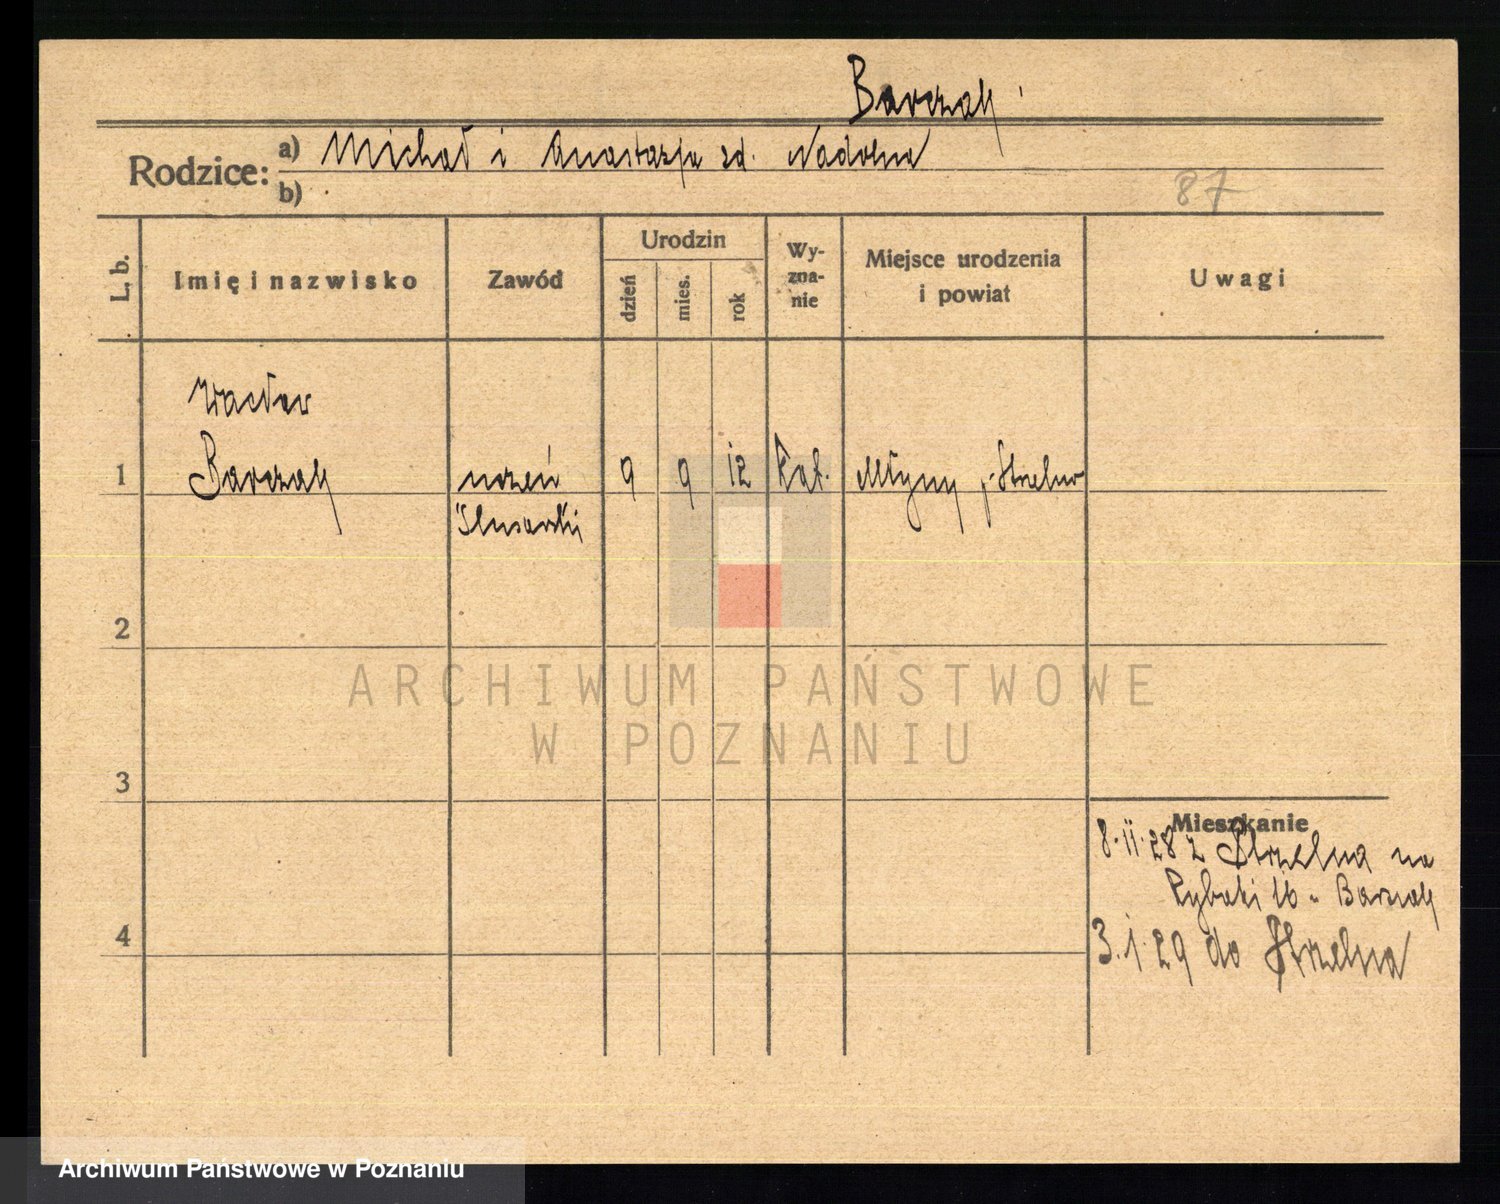 Barczak
Rodzice: a) Michał i Anastazja zd. Nadolna
b)
87
L. b.
Imię i nazwisko
Zawód
Urodzin
dzień
mies.
rok
Wy-
zna-
nie
Miejsce urodzenia
i powiat
Uwagi
Wacław
1 Barczak uczeń 9 9 12 kat. Młyny p. Strzelno
ślusarski
2
3
4
Mieszkanie
8.II.28 z Strzelna na
Rybaki 16 u Barczak
3.1.29 do Strzelna
ARCHIWUM PAŃSTWOWE
W POZNANIU
Archiwum Państwowe w Poznaniu